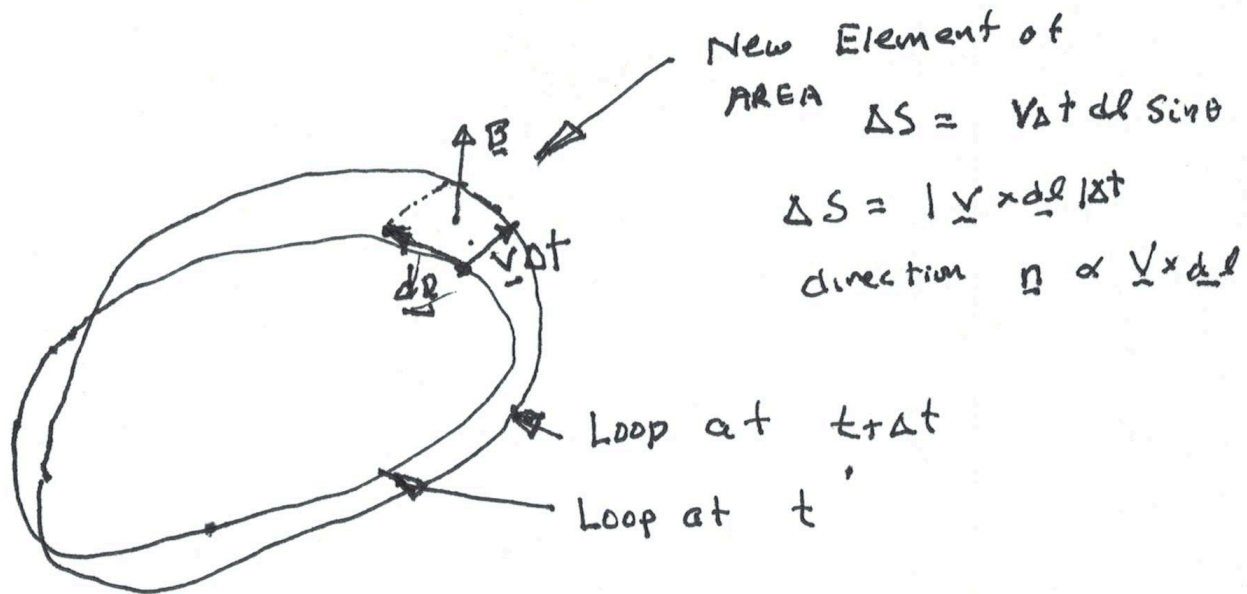 New Element of
AREA
ΔS = VΔt dl Sinθ
ΔS = |V × dl|Δt
direction n ∝ V × dl
B
VΔt
dl
Loop at t+Δt
Loop at t